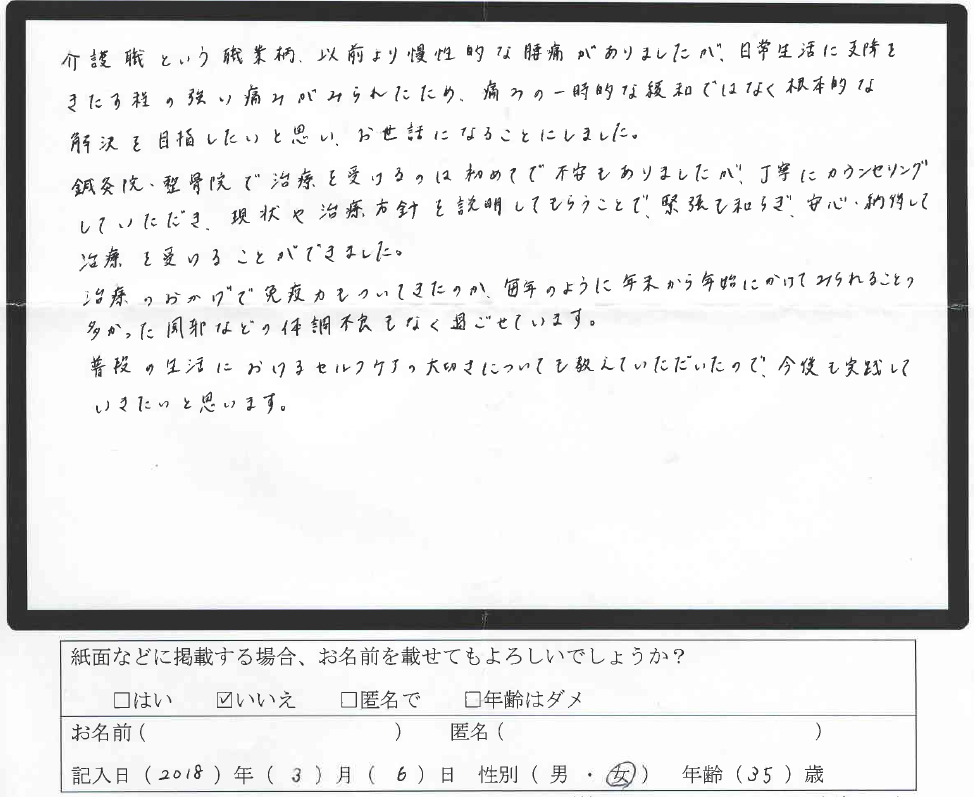 介護職という職業柄、以前より慢性的な腰痛がありましたが、日常生活に支障を
きたす程の強い痛みがみられたため、痛みの一時的な緩和ではなく根本的な
解決を目指したいと思い、お世話になることにしました。
鍼灸院・整骨院で治療を受けるのは初めてで不安もありましたが、丁寧にカウンセリング
していただき、現状や治療方針を説明してもらうことで、緊張も和らぎ、安心・納得して
治療を受けることができました。
治療のおかげで免疫力もついてきたのか、毎年のように年末から年始にかけてみられることの
多かった風邪などの体調不良もなく過ごせています。
普段の生活におけるセルフケアの大切さについても教えていただいたので、今後も実践して
いきたいと思います。
紙面などに掲載する場合、お名前を載せてもよろしいでしょうか?
□はい ☑いいえ □匿名で □年齢はダメ
お名前( ) 匿名( )
記入日(2018)年(3)月(6)日 性別(男・女) 年齢(35)歳